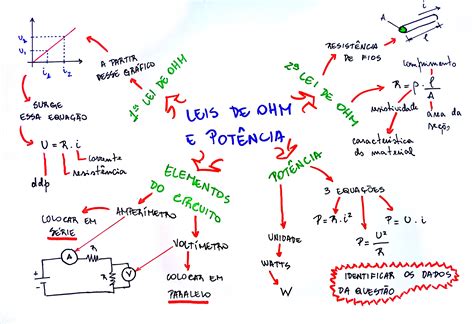 LEIS DE OHM
E POTÊNCIA
1ª LEI DE OHM
A PARTIR
DESSE GRÁFICO
U₂
U₁
i₁
i₂
SURGE
ESSA EQUAÇÃO
U = R. i
corrente
resistência
ddp
2ª LEI DE OHM
RESISTÊNCIA
DE FIOS
A
i
l
comprimento
R = ρ. l
A
resistividade
área da
secção
característica
do material
ELEMENTOS
DO CIRCUITO
AMPERÍMETRO
COLOCAR EM
SÉRIE
VOLTÍMETRO
COLOCAR EM
PARALELO
A
R₁
R₂
V
POTÊNCIA
UNIDADE
WATTS
W
3 EQUAÇÕES
P = R. i²
P = U. i
P = U²
R
IDENTIFICAR OS DADOS
DA QUESTÃO